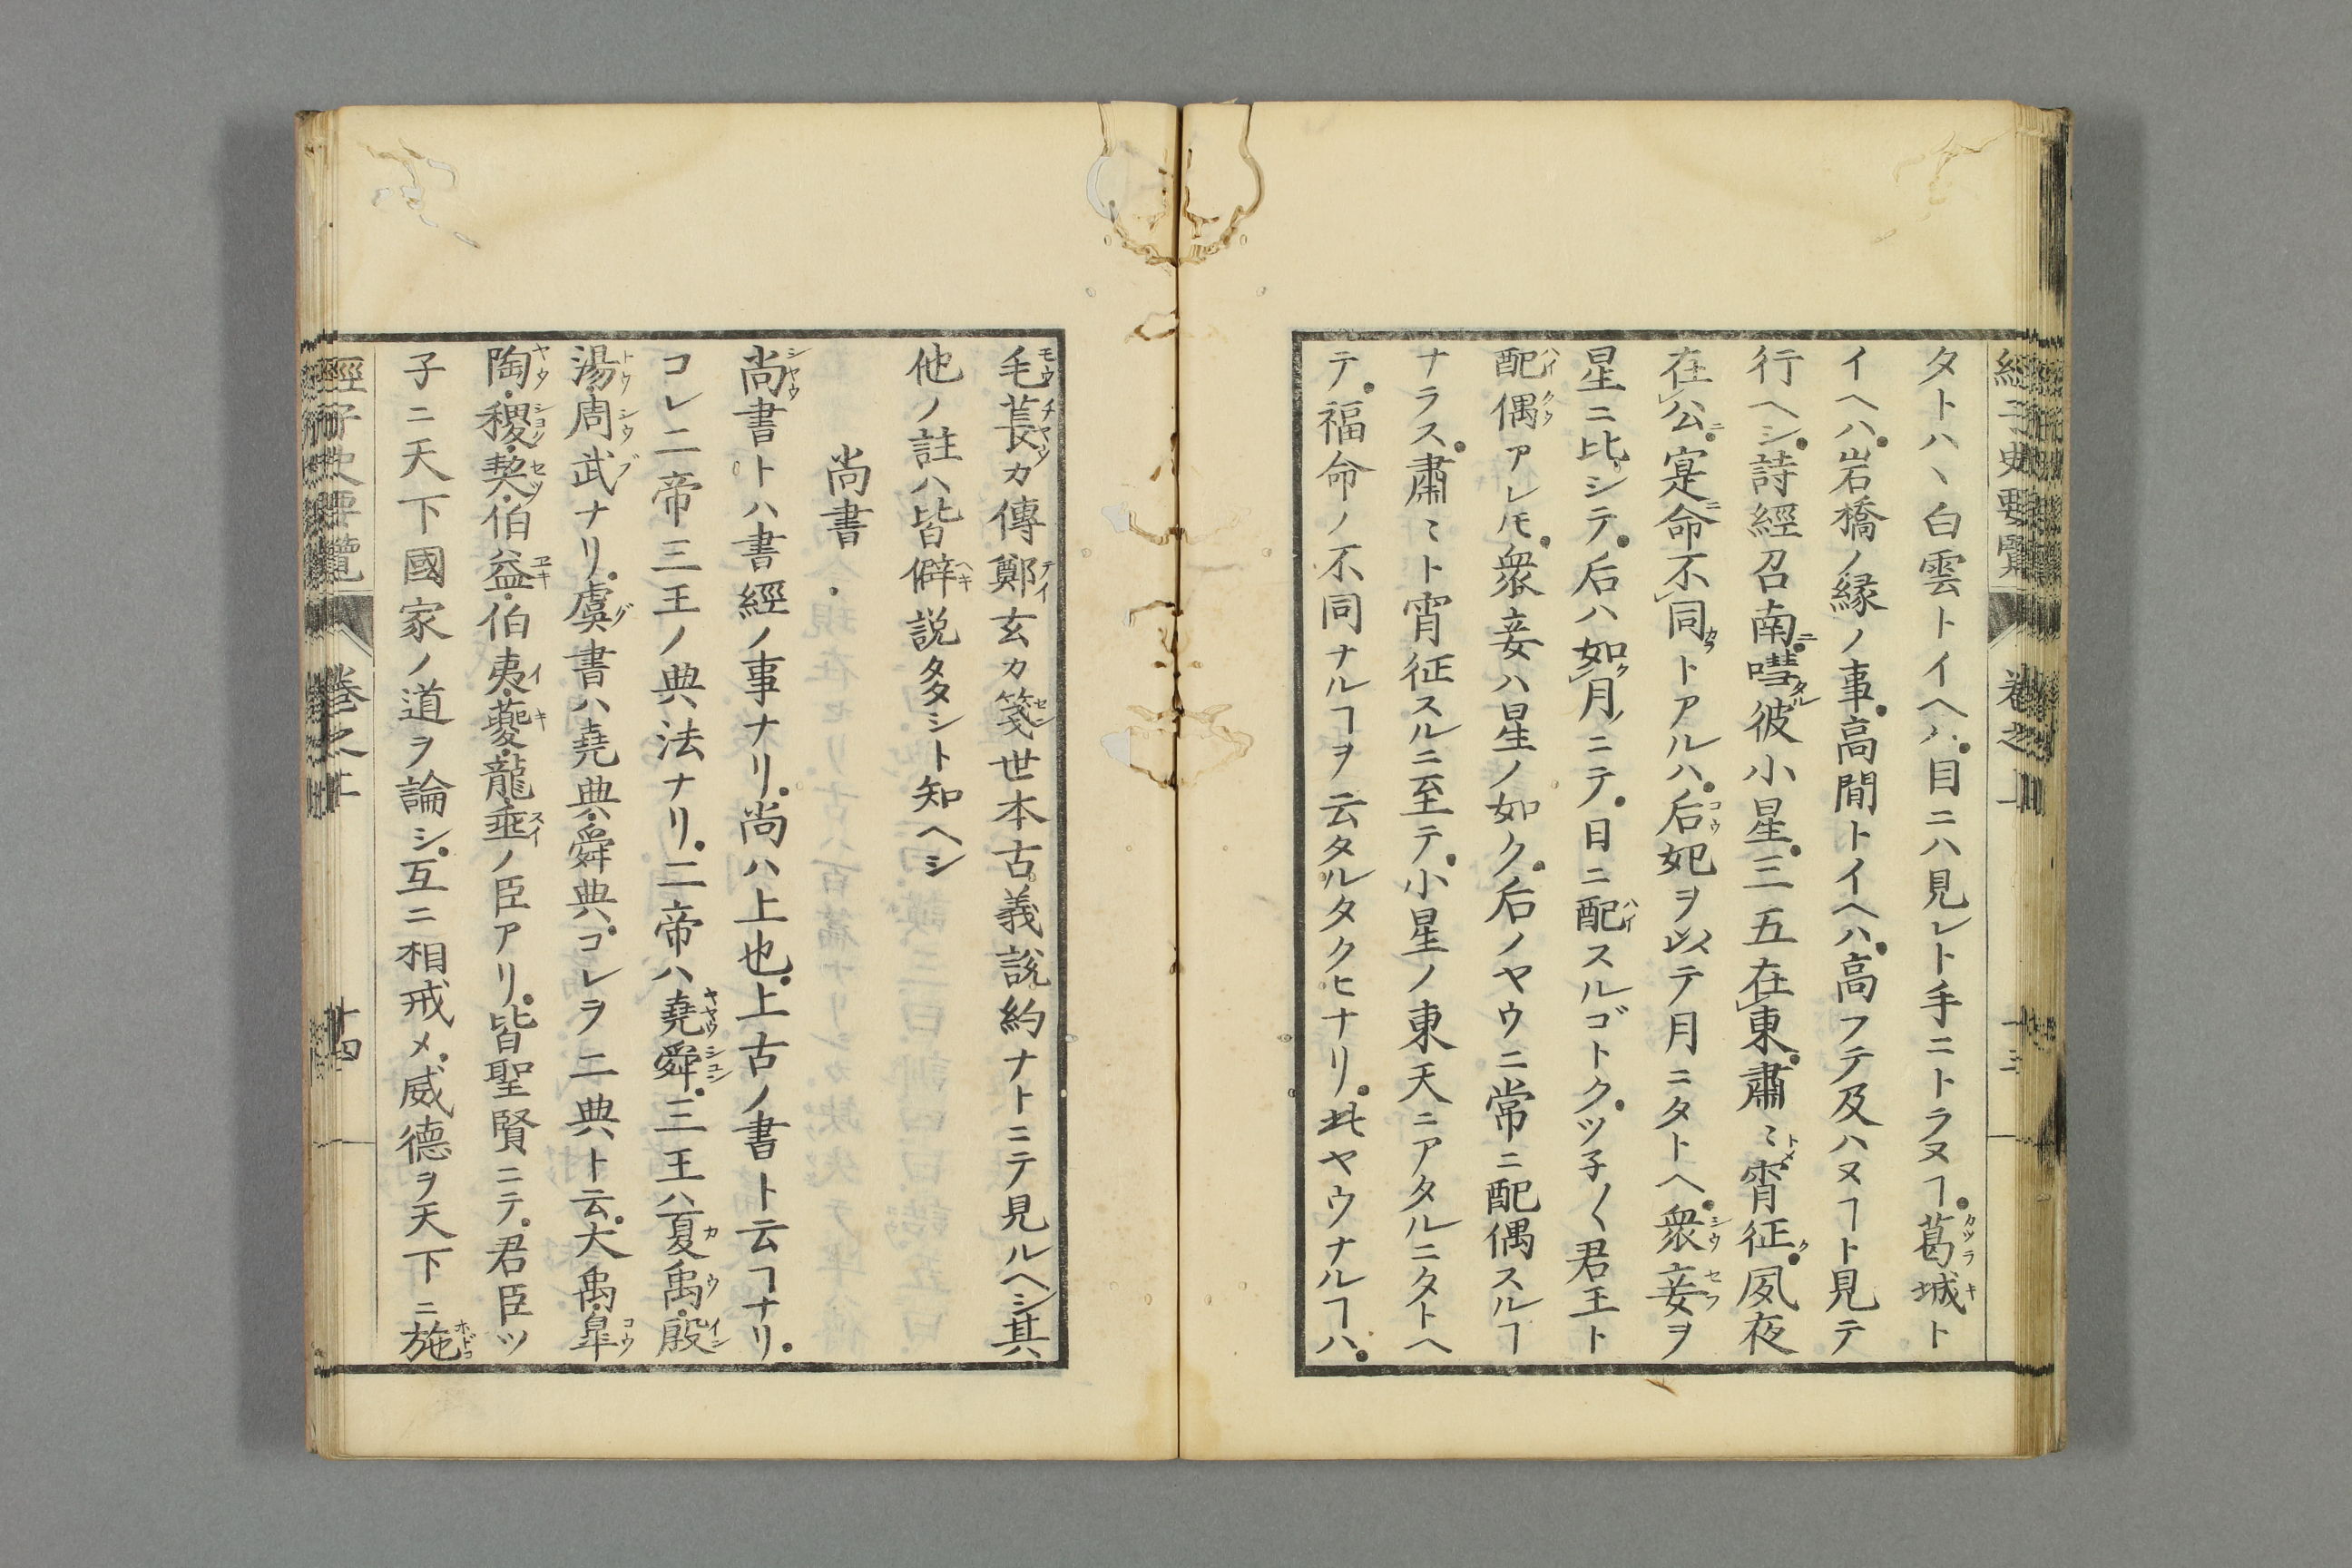 經子史要覽 卷之上 十三
タトハヽ白雲トイヘハ。目ニハ見レト手ニトラヌヿ。葛城ト
イヘハ。岩橋ノ縁ノ事。高間トイヘハ。高フテ及ハヌヿト見テ
行ヘシ。詩經召南ニ。嘒タル彼小星。三五在東。肅〻トメ宵征ク。夙夜
在公ニ。寔ニ命不同カラトアルハ。后妃ヲ以テ月ニタトヘ。衆妾ヲ
星ニ比シテ。后ハ如ク月ノニテ。日ニ配スルゴトク。ツ子〱君王ト
配偶アレㇳモ。衆妾ハ星ノ如ク。后ノヤウニ常ニ配偶スルヿ
ナラス。肅〻ト宵征スルニ至テ。小星ノ東天ニアタルニタトヘ
テ。福命ノ不同ナルヿヲ云タルタクヒナリ。此ヤウナルヿハ。
毛萇カ傳鄭玄カ箋世本古義說約ナトニテ見ルヘシ其
他ノ註ハ皆僻説多シト知ヘシ
尚書
尚書トハ書經ノ事ナリ。尚ハ上也。上古ノ書ト云ヿナリ。
コレ二帝三王ノ典法ナリ。二帝ハ堯舜。三王ハ夏禹・殷
湯・周武ナリ。虞書ハ堯典・舜典。コレヲ二典ト云。大禹・皐
陶・稷・契・伯益・伯夷・夔・龍・垂ノ臣アリ。皆聖賢ニテ。君臣ツ
子ニ天下國家ノ道ヲ論シ。互ニ相戒メ。威德ヲ天下ニ施
經子史要覽 卷之上 十四